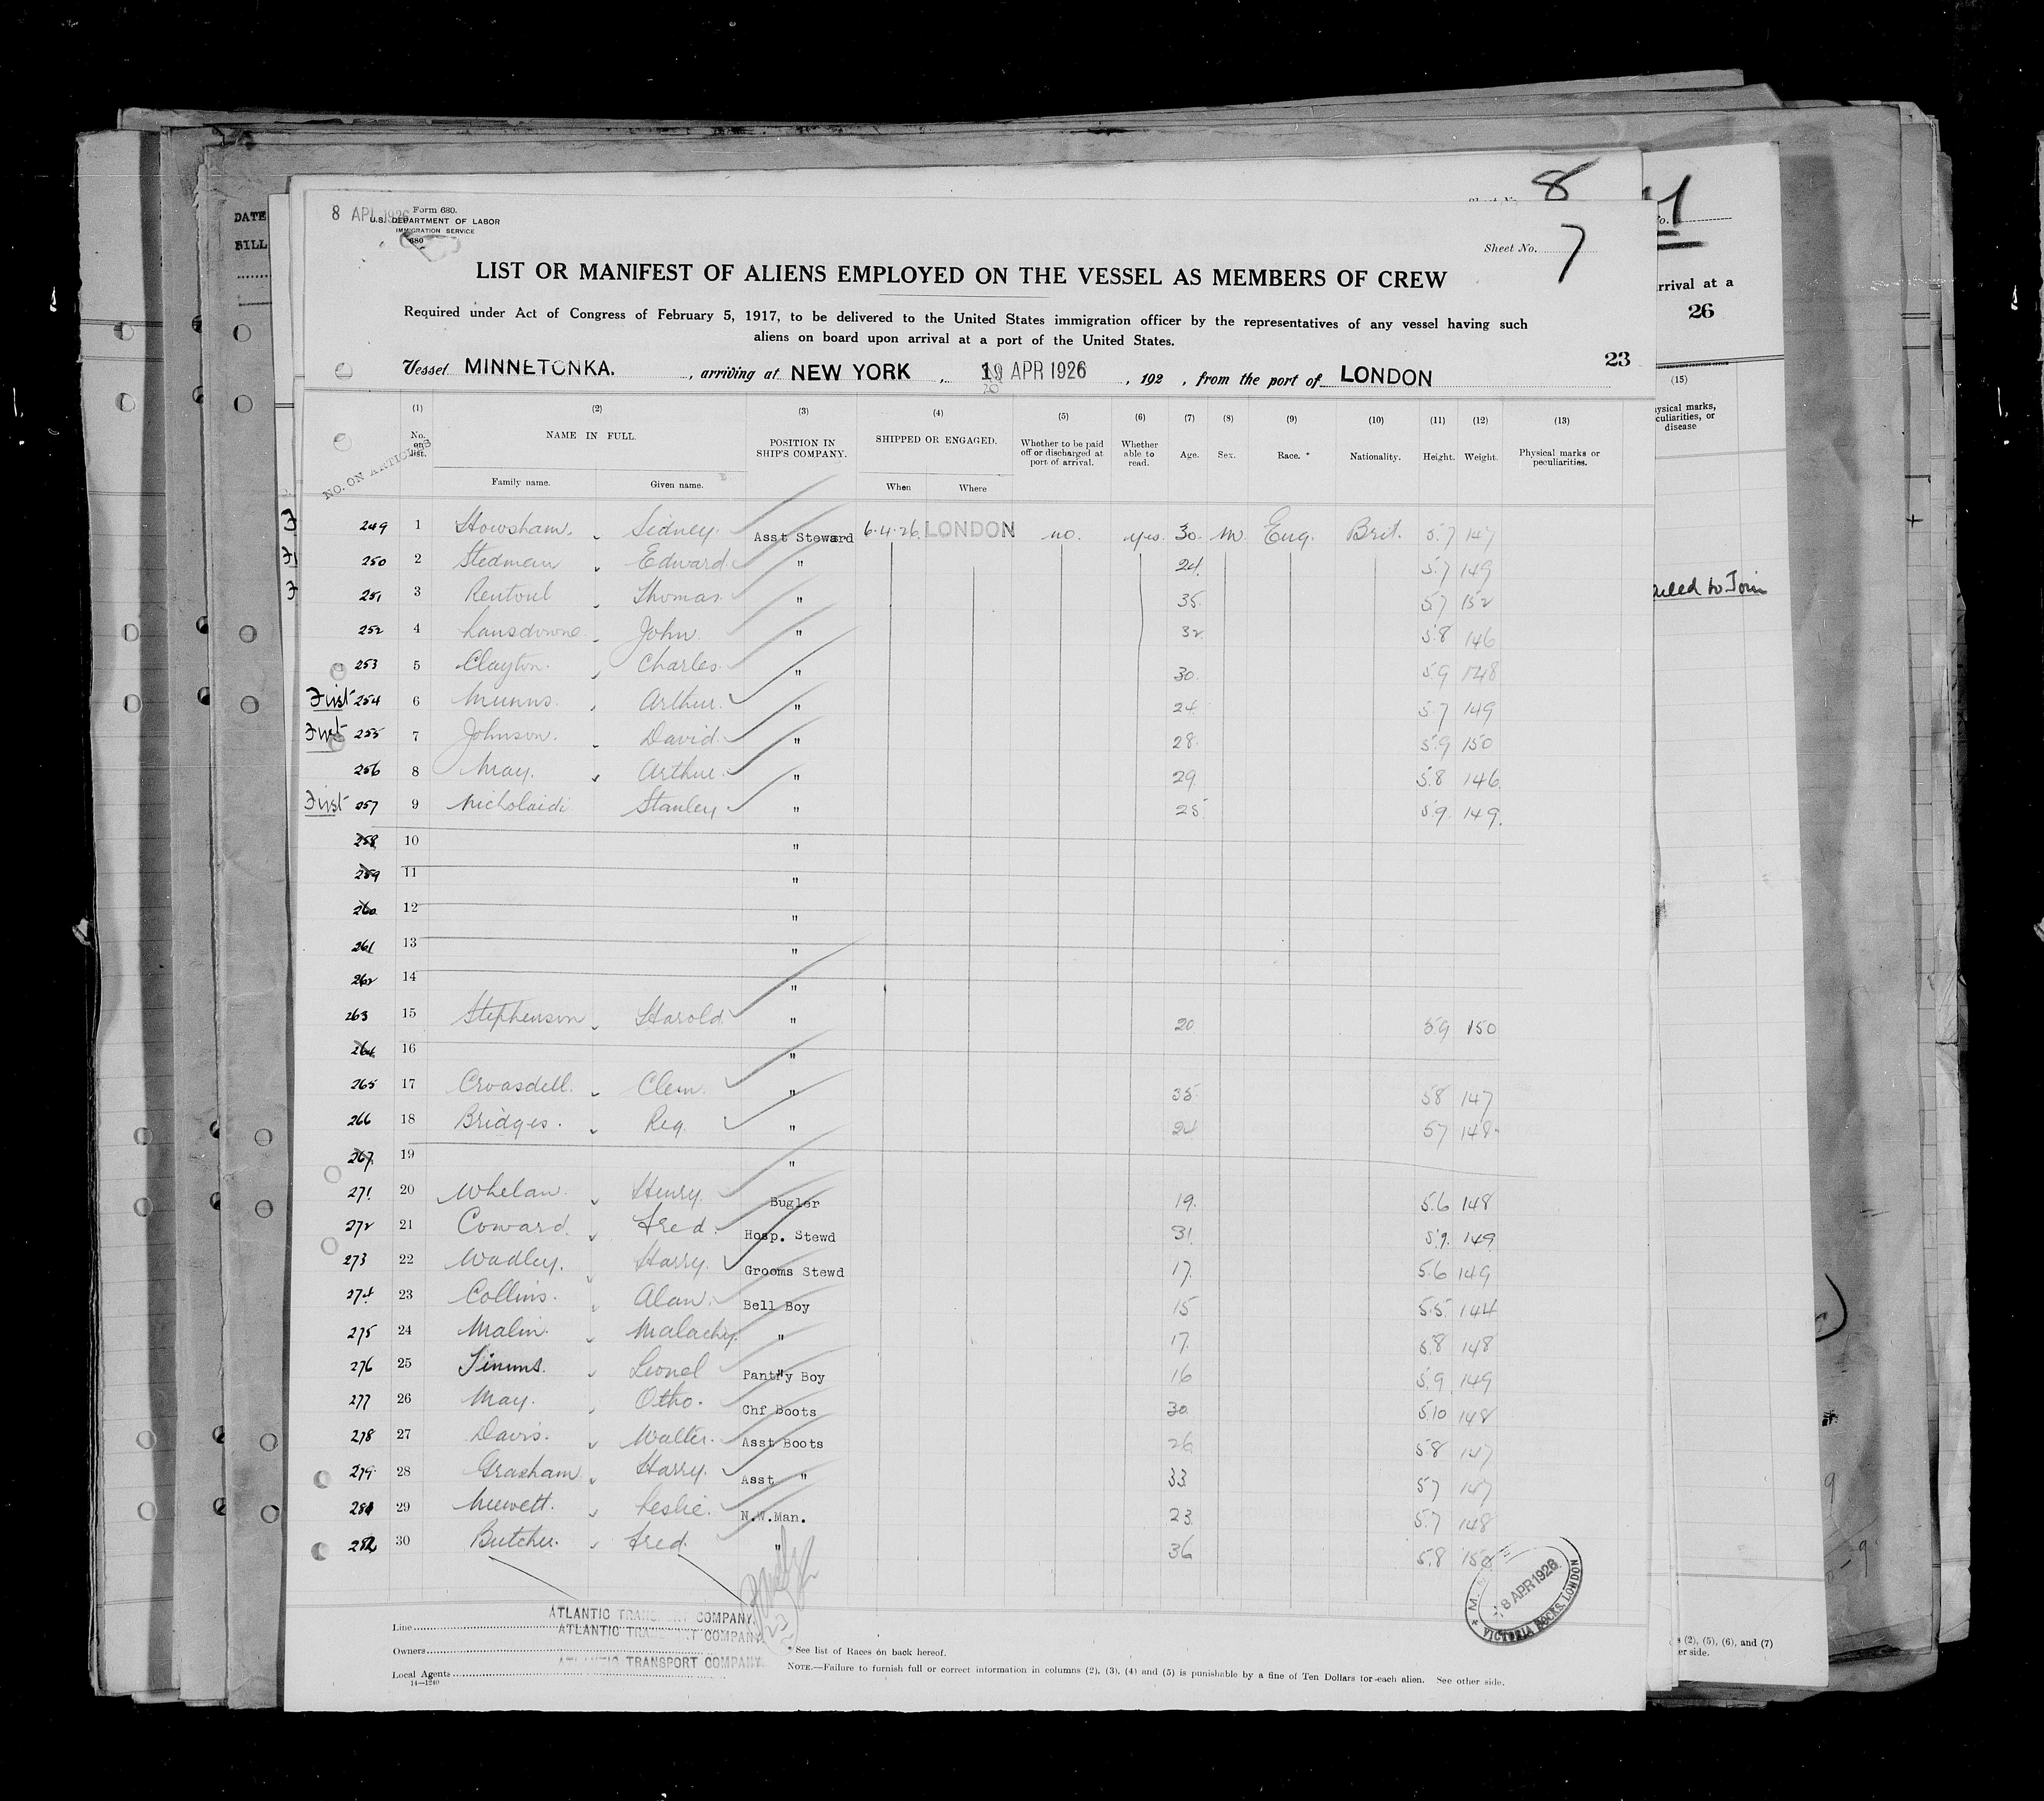 8 APR 1926
Form 680.
U.S. DEPARTMENT OF LABOR
IMMIGRATION SERVICE
680
8
Sheet No. 7
LIST OR MANIFEST OF ALIENS EMPLOYED ON THE VESSEL AS MEMBERS OF CREW
Required under Act of Congress of February 5, 1917, to be delivered to the United States immigration officer by the representatives of any vessel having such
aliens on board upon arrival at a port of the United States.
23
Vessel MINNETONKA. , arriving at NEW YORK , 19 APR 1926 , 192 , from the port of LONDON
NO. ON ARTICLES
(1) (2) (3) (4) (5) (6) (7) (8) (9) (10) (11) (12) (13)
No. on list. NAME IN FULL. POSITION IN SHIP'S COMPANY. SHIPPED OR ENGAGED. Whether to be paid off or discharged at port of arrival. Whether able to read. Age. Sex. Race. * Nationality. Height. Weight. Physical marks or peculiarities.
Family name. Given name. When Where
249 1 Stowsham. Sidney. Asst Steward 6.4.26. LONDON no. yes. 30. M. Eng. Brit. 5.7 147
250 2 Stedman Edward. " 24. 5.7 149
251 3 Rentoul Thomas. " 35. 5.7 152
252 4 Lansdowne. John. " 32. 5.8 146
253 5 Clayton. Charles. " 30. 5.9 148
First 254 6 Munns. Arthur. " 24. 5.7 149
First 255 7 Johnson. David. " 28. 5.9 150
256 8 May. Arthur. " 29. 5.8 146
First 257 9 Nicholaidi Stanley " 25. 5.9. 149.
258 10 "
259 11 "
260 12 "
261 13 "
262 14 "
263 15 Stephenson Harold. " 20 5.9 150
264 16 "
265 17 Croasdell. Clem. " 35. 5.8 147
266 18 Bridges. Reg. " 24 5.7 148
267 19 "
271 20 Whelan. Henry. Bugler 19. 5.6 148
272 21 Coward. Fred. Hosp. Stewd 31. 5.9. 149
273 22 Wadley. Harry. Grooms Stewd 17. 5.6 149
274 23 Collins. Alan. Bell Boy 15 5.5. 144
275 24 Malin. Malachy. " 17. 5.8 148
276 25 Simms. Lionel Pantry Boy 16 5.9 149
277 26 May. Otho. Chf Boots 30. 5.10 148
278 27 Davis. Walter. Asst Boots 26 5.8 147
279 28 Grasham. Harry. Asst " 33. 5.7 147
281 29 Leslie. N.W.Man. 23. 5.7 148
282 30 Butcher. Fred. " 36 5.8 150
Line ATLANTIC TRANSPORT COMPANY.
Owners ATLANTIC TRANSPORT COMPANY.
Local Agents ATLANTIC TRANSPORT COMPANY.
14—1240
* See list of Races on back hereof.
NOTE.—Failure to furnish full or correct information in columns (2), (3), (4) and (5) is punishable by a fine of Ten Dollars for each alien. See other side.
8 APR 1926
VICTORIA DOCKS, LONDON
DATE
BILL
rrival at a
26
(15)
ysical marks,
culiarities, or
disease
ailed to Join
(2), (5), (6), and (7)
er side.